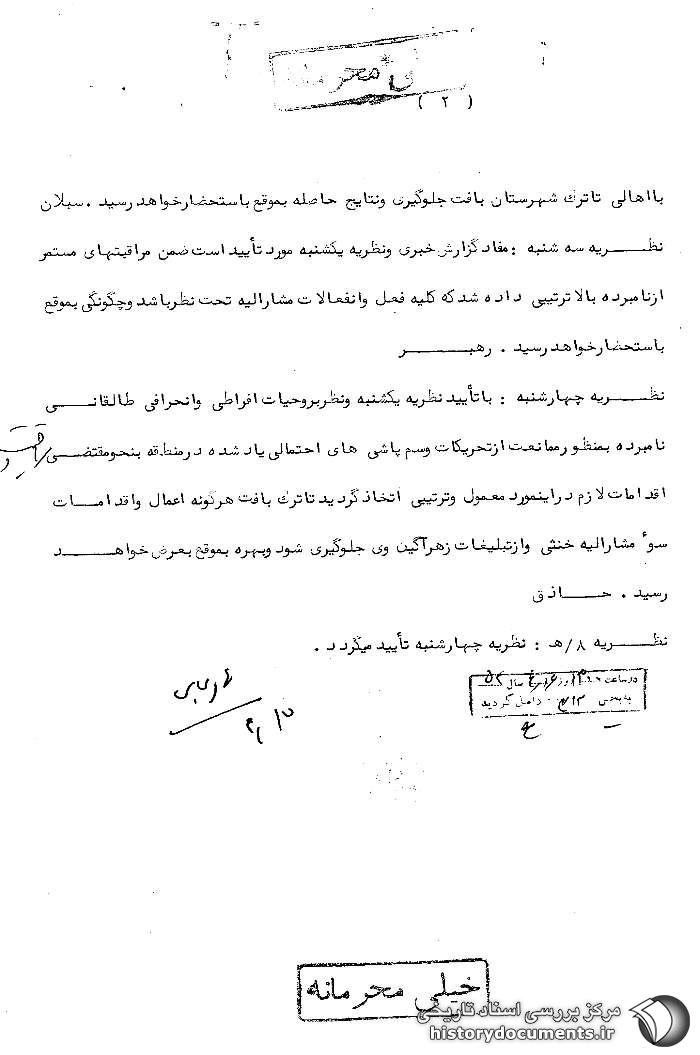 محرمانه
( ۲ )
با اهالی تا ترك شهرستان بافت جلوگیری و نتایج حاصله بموقع باستحضار خواهد رسید . سبلان
نظـــریه سه شنبه : مفاد گزارش خبری و نظریه یکشنبه مورد تأیید است ضمن مراقبتهای مستمر
از نامبرده بالا ترتیبی داده شد که کلیه فعل و انفعالات مشارالیه تحت نظر باشد و چگونگی بموقع
باستحضار خواهد رسید . رهبـــر
نظـــریه چهارشنبه : با تأیید نظریه یکشنبه و نظر بروحیات افراطی و انحرافی طالقانـــی
نامبرده بمنظور ممانعت از تحریکات وسم پاشی های احتمالی یاد شده در منطقه بنحو مقتضـــی
اقدامات لازم در اینمورد معمول و ترتیبی اتخاذ گردید تا ترك بافت هرگونه اعمال و اقدامـــات
سوء مشارالیه خنثی و از تبلیغات زهرآگین وی جلوگیری شود و بهره بموقع بعرض خواهـــد
رسید . حـــاذق
نظـــریه ۸/هـ : نظریه چهارشنبه تأیید میگردد .
در ساعت روز سال
به بخش ۳۱۲ داخل گردید
خیلی محرمانه
مرکز بررسی اسناد تاریخی
historydocuments.ir